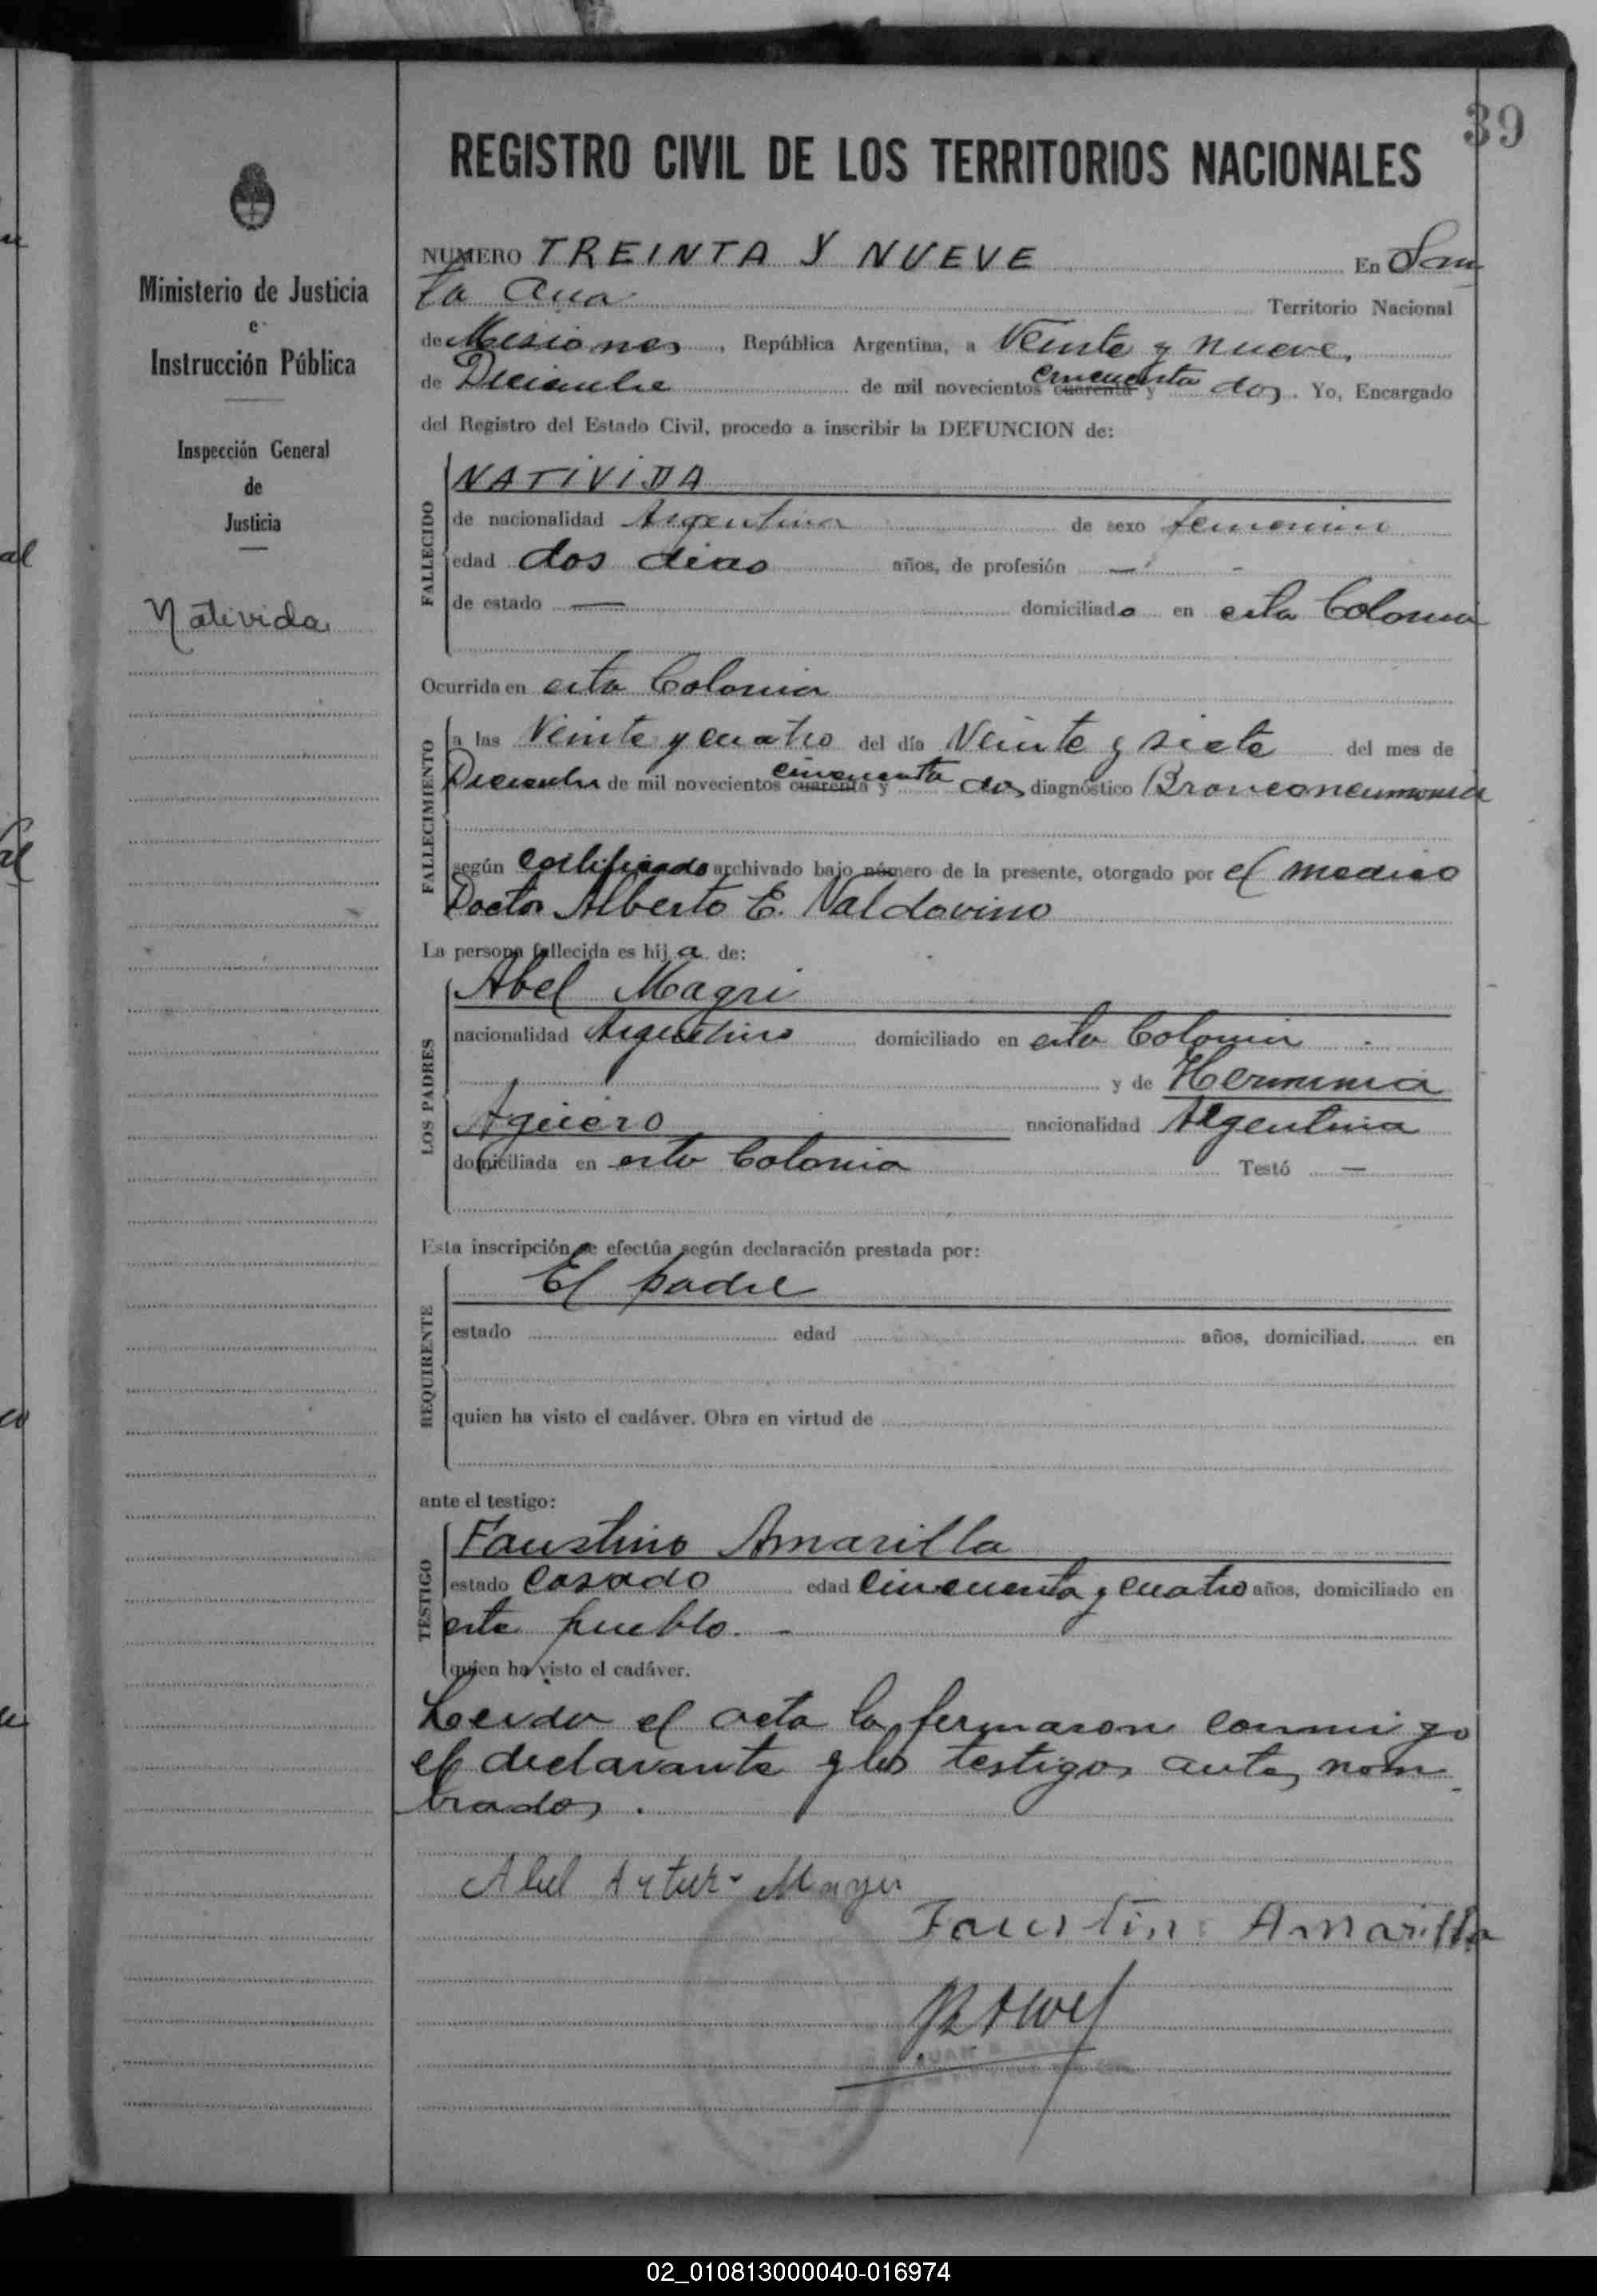 39
REGISTRO CIVIL DE LOS TERRITORIOS NACIONALES
Ministerio de Justicia
e
Instrucción Pública
Inspección General
de
Justicia
Nativida
NUMERO TREINTA Y NUEVE En San
ta Ana Territorio Nacional
de Misiones, República Argentina, a Veinte y nueve,
de Diciembre de mil novecientos cuarenta y cincuenta dos. Yo, Encargado
del Registro del Estado Civil, procedo a inscribir la DEFUNCION de:
FALLECIDO
NATIVIDA
de nacionalidad Argentina de sexo femenino
edad dos dias años, de profesión —
de estado — domiciliada en esta Colonia
Ocurrida en esta Colonia
FALLECIMIENTO
a las Veinte y cuatro del día Veinte y siete del mes de
Diciembre de mil novecientos cuarenta y cincuenta dos diagnóstico Bronconeumonia
según certificado archivado bajo número de la presente, otorgado por el medico
Doctor Alberto E. Valdovino
La persona fallecida es hija de:
LOS PADRES
Abel Magri
nacionalidad Argentino domiciliado en esta Colonia
y de Herminia
Agüero nacionalidad Argentina
domiciliada en esta Colonia Testó —
Esta inscripción se efectúa según declaración prestada por:
REQUIRENTE
El padre
estado edad años, domiciliad. en
quien ha visto el cadáver. Obra en virtud de
ante el testigo:
TESTIGO
Faustino Amarilla
estado casado edad cincuenta y cuatro años, domiciliado en
este pueblo. -
quien ha visto el cadáver.
Leida el acta la firmaron conmigo
el declarante y los testigos antes nom
brados.
Abel
Faustino Amarilla
02_010813000040-016974